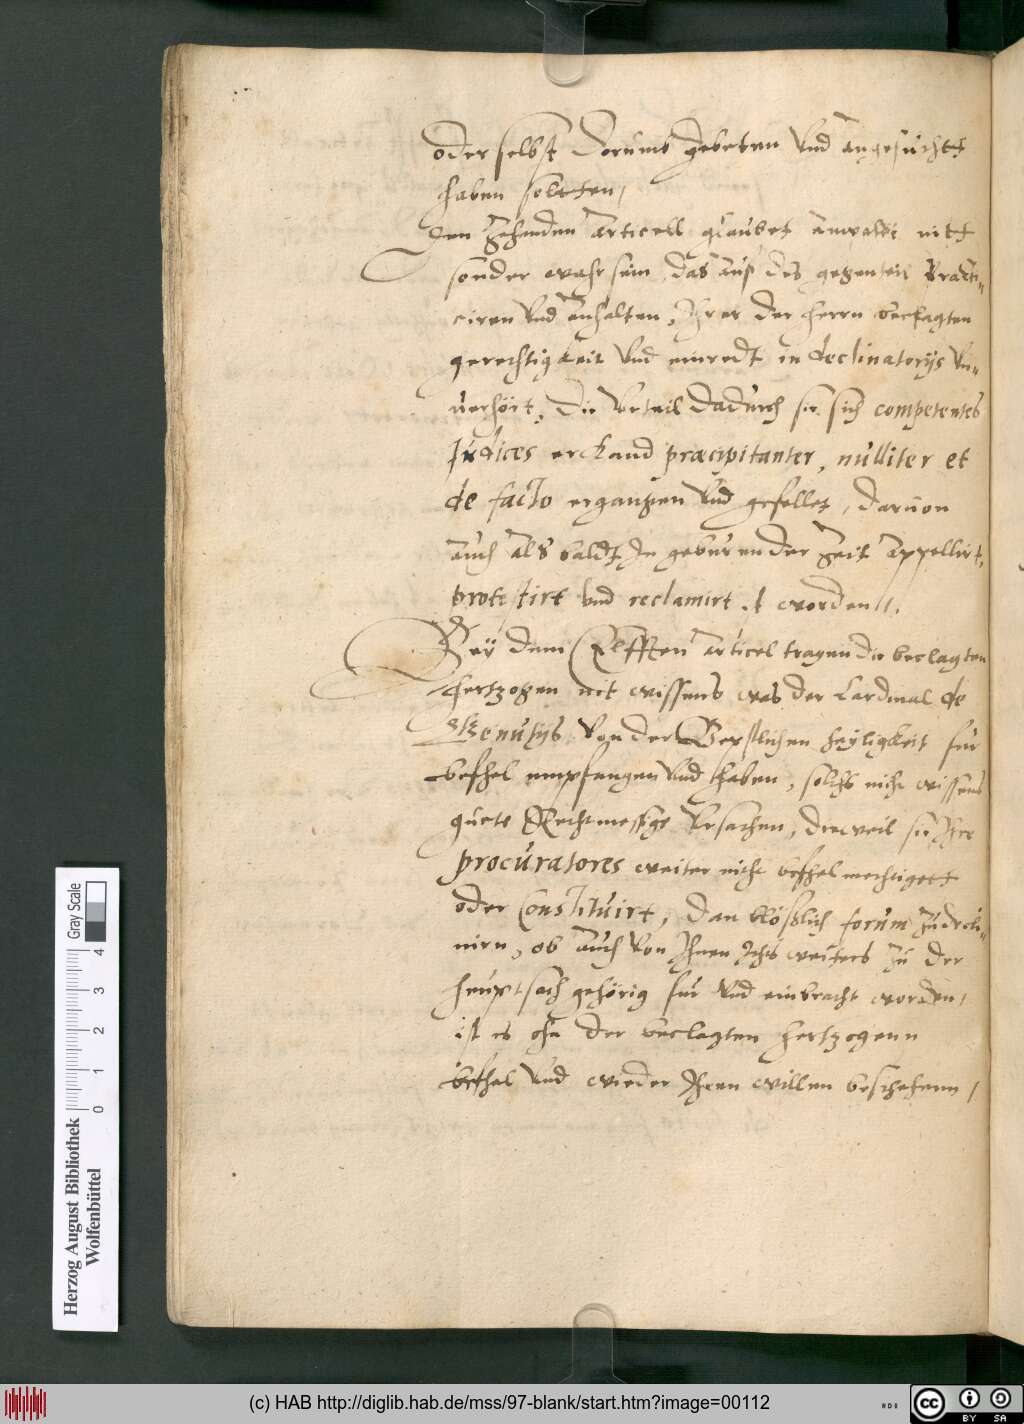 oder selbst dorumb gebeten vnd angesuchtt
haben soltten /
Den zehenden Articell glaubet Anwaldt nitt
sonder wahr sein, das auß des gegenteil Practi„
ciren vnd anhalten, Ihrer der herrn beclagten
gerechtigkeit vnd einredt in declinatorijs vn„
uerhört, die vrteil dadurch sie sich competentes
Judices erckand præcipitanter, nulliter et
de facto ergangen vnd gefellet, daruon
auch als baldt In geburender Zeit Appellirt,
protestirt vnd reclamirt ist worden //.
Bey dem Elfften articel tragen die beclagten
hertzogen nit wissens was der Cardinal de
vonder Bepstlichen heyligkeit für
befhel empfangen vnd haben, solchs nicht wissens
guete Rechtmessige Vrsachen, dieweil sie Ihre
procuratores weiter nicht befhel mechtigett
oder Constituirt, dan blößlich forum zu decli„
nirn, ob auch von Ihnen Ichts weiters zu der
heuptsach gehörig für vnd einbracht worden,
ist es ohn der beclagten hertzogenn
befhel vnd wieder Ihren willen beschehenn /
Herzog August Bibliothek
Wolfenbüttel
Gray Scale
0 1 2 3 4
(c) HAB http://diglib.hab.de/mss/97-blank/start.htm?image=00112
cc BY SA